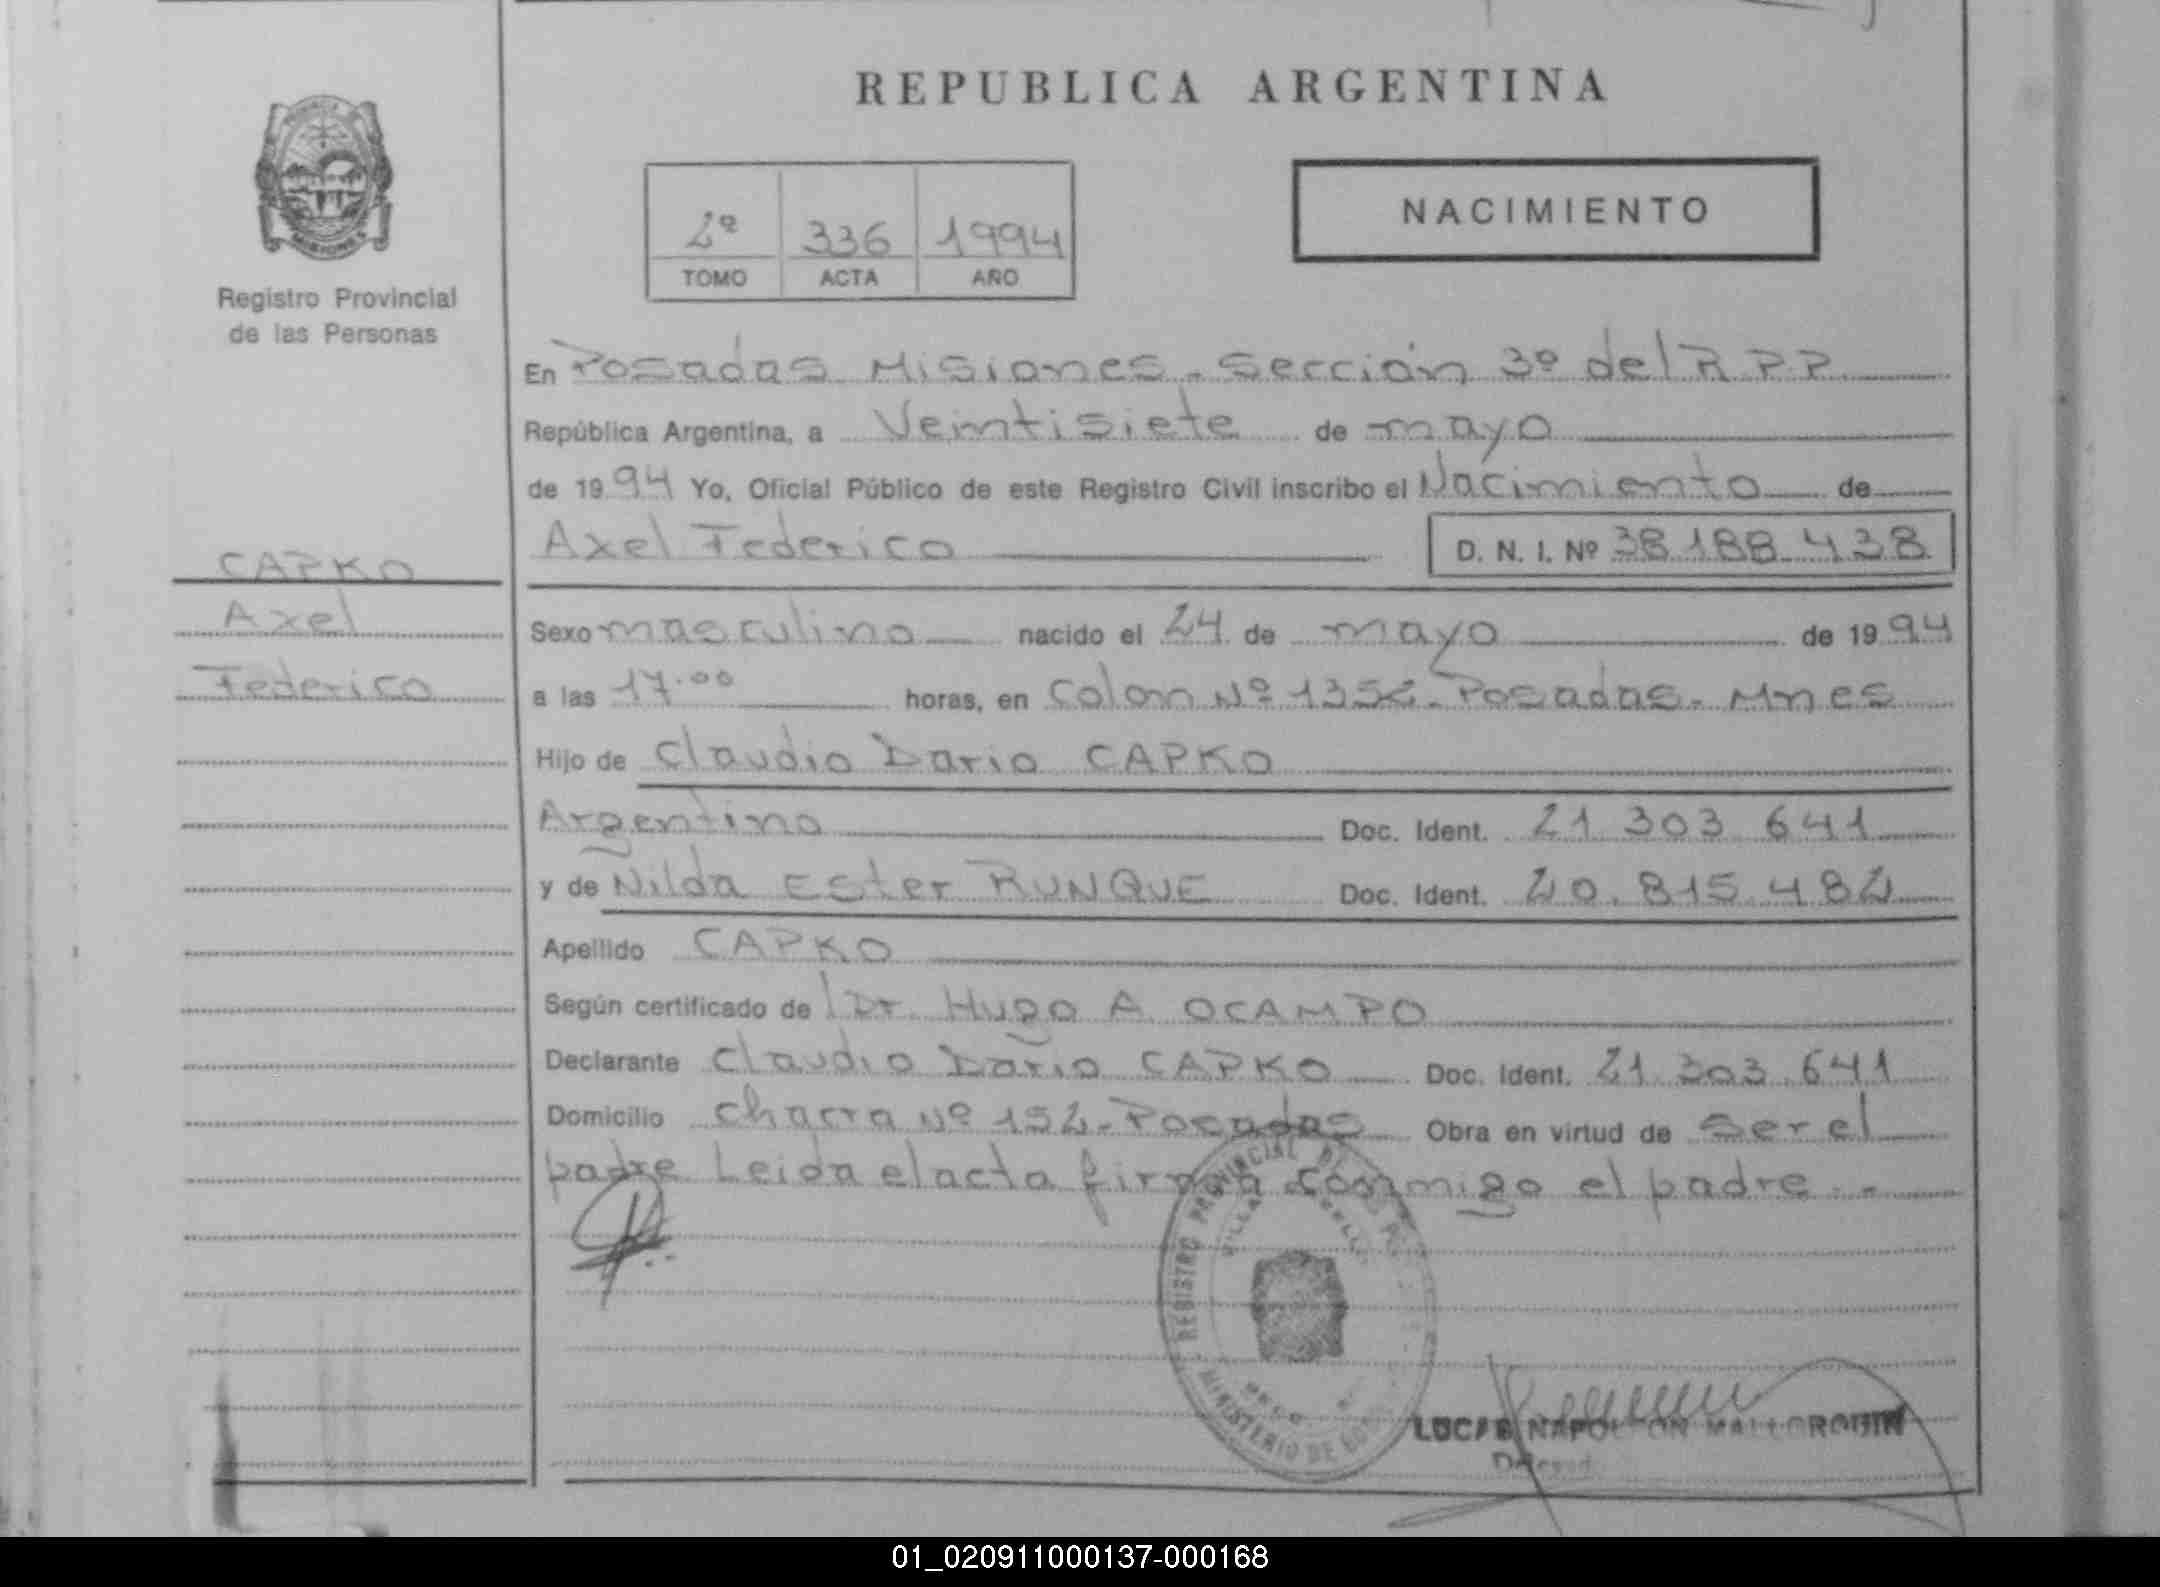 REPUBLICA ARGENTINA
NACIMIENTO
2º 336 1994
TOMO ACTA AÑO
MISIONES
Registro Provincial
de las Personas
CAPKO
Axel
Federico
En Posadas Misiones - Sección 3º del R.P.P.
República Argentina, a Veintisiete de mayo
de 1994 Yo, Oficial Público de este Registro Civil inscribo el Nacimiento de
Axel Federico D. N. I. Nº 38.188.438
Sexo masculino nacido el 24 de mayo de 1994
a las 17.00 horas, en Colon Nº 1352 - Posadas - Mnes
Hijo de Claudio Dario CAPKO
Argentino Doc. Ident. 21.303.641
y de Nilda Ester RUNQUE Doc. Ident. 20.815.482
Apellido CAPKO
Según certificado de l Dr. Hugo A. OCAMPO
Declarante Claudio Dario CAPKO Doc. Ident. 21.303.641
Domicilio Chacra Nº 152 - Posadas Obra en virtud de Ser el
padre Leida el acta firma conmigo el padre. -
REGISTRO PROVINCIAL DE
VILLA
MINISTERIO DE
LUCAS NAPOLEON MALLORQUIN
01_020911000137-000168